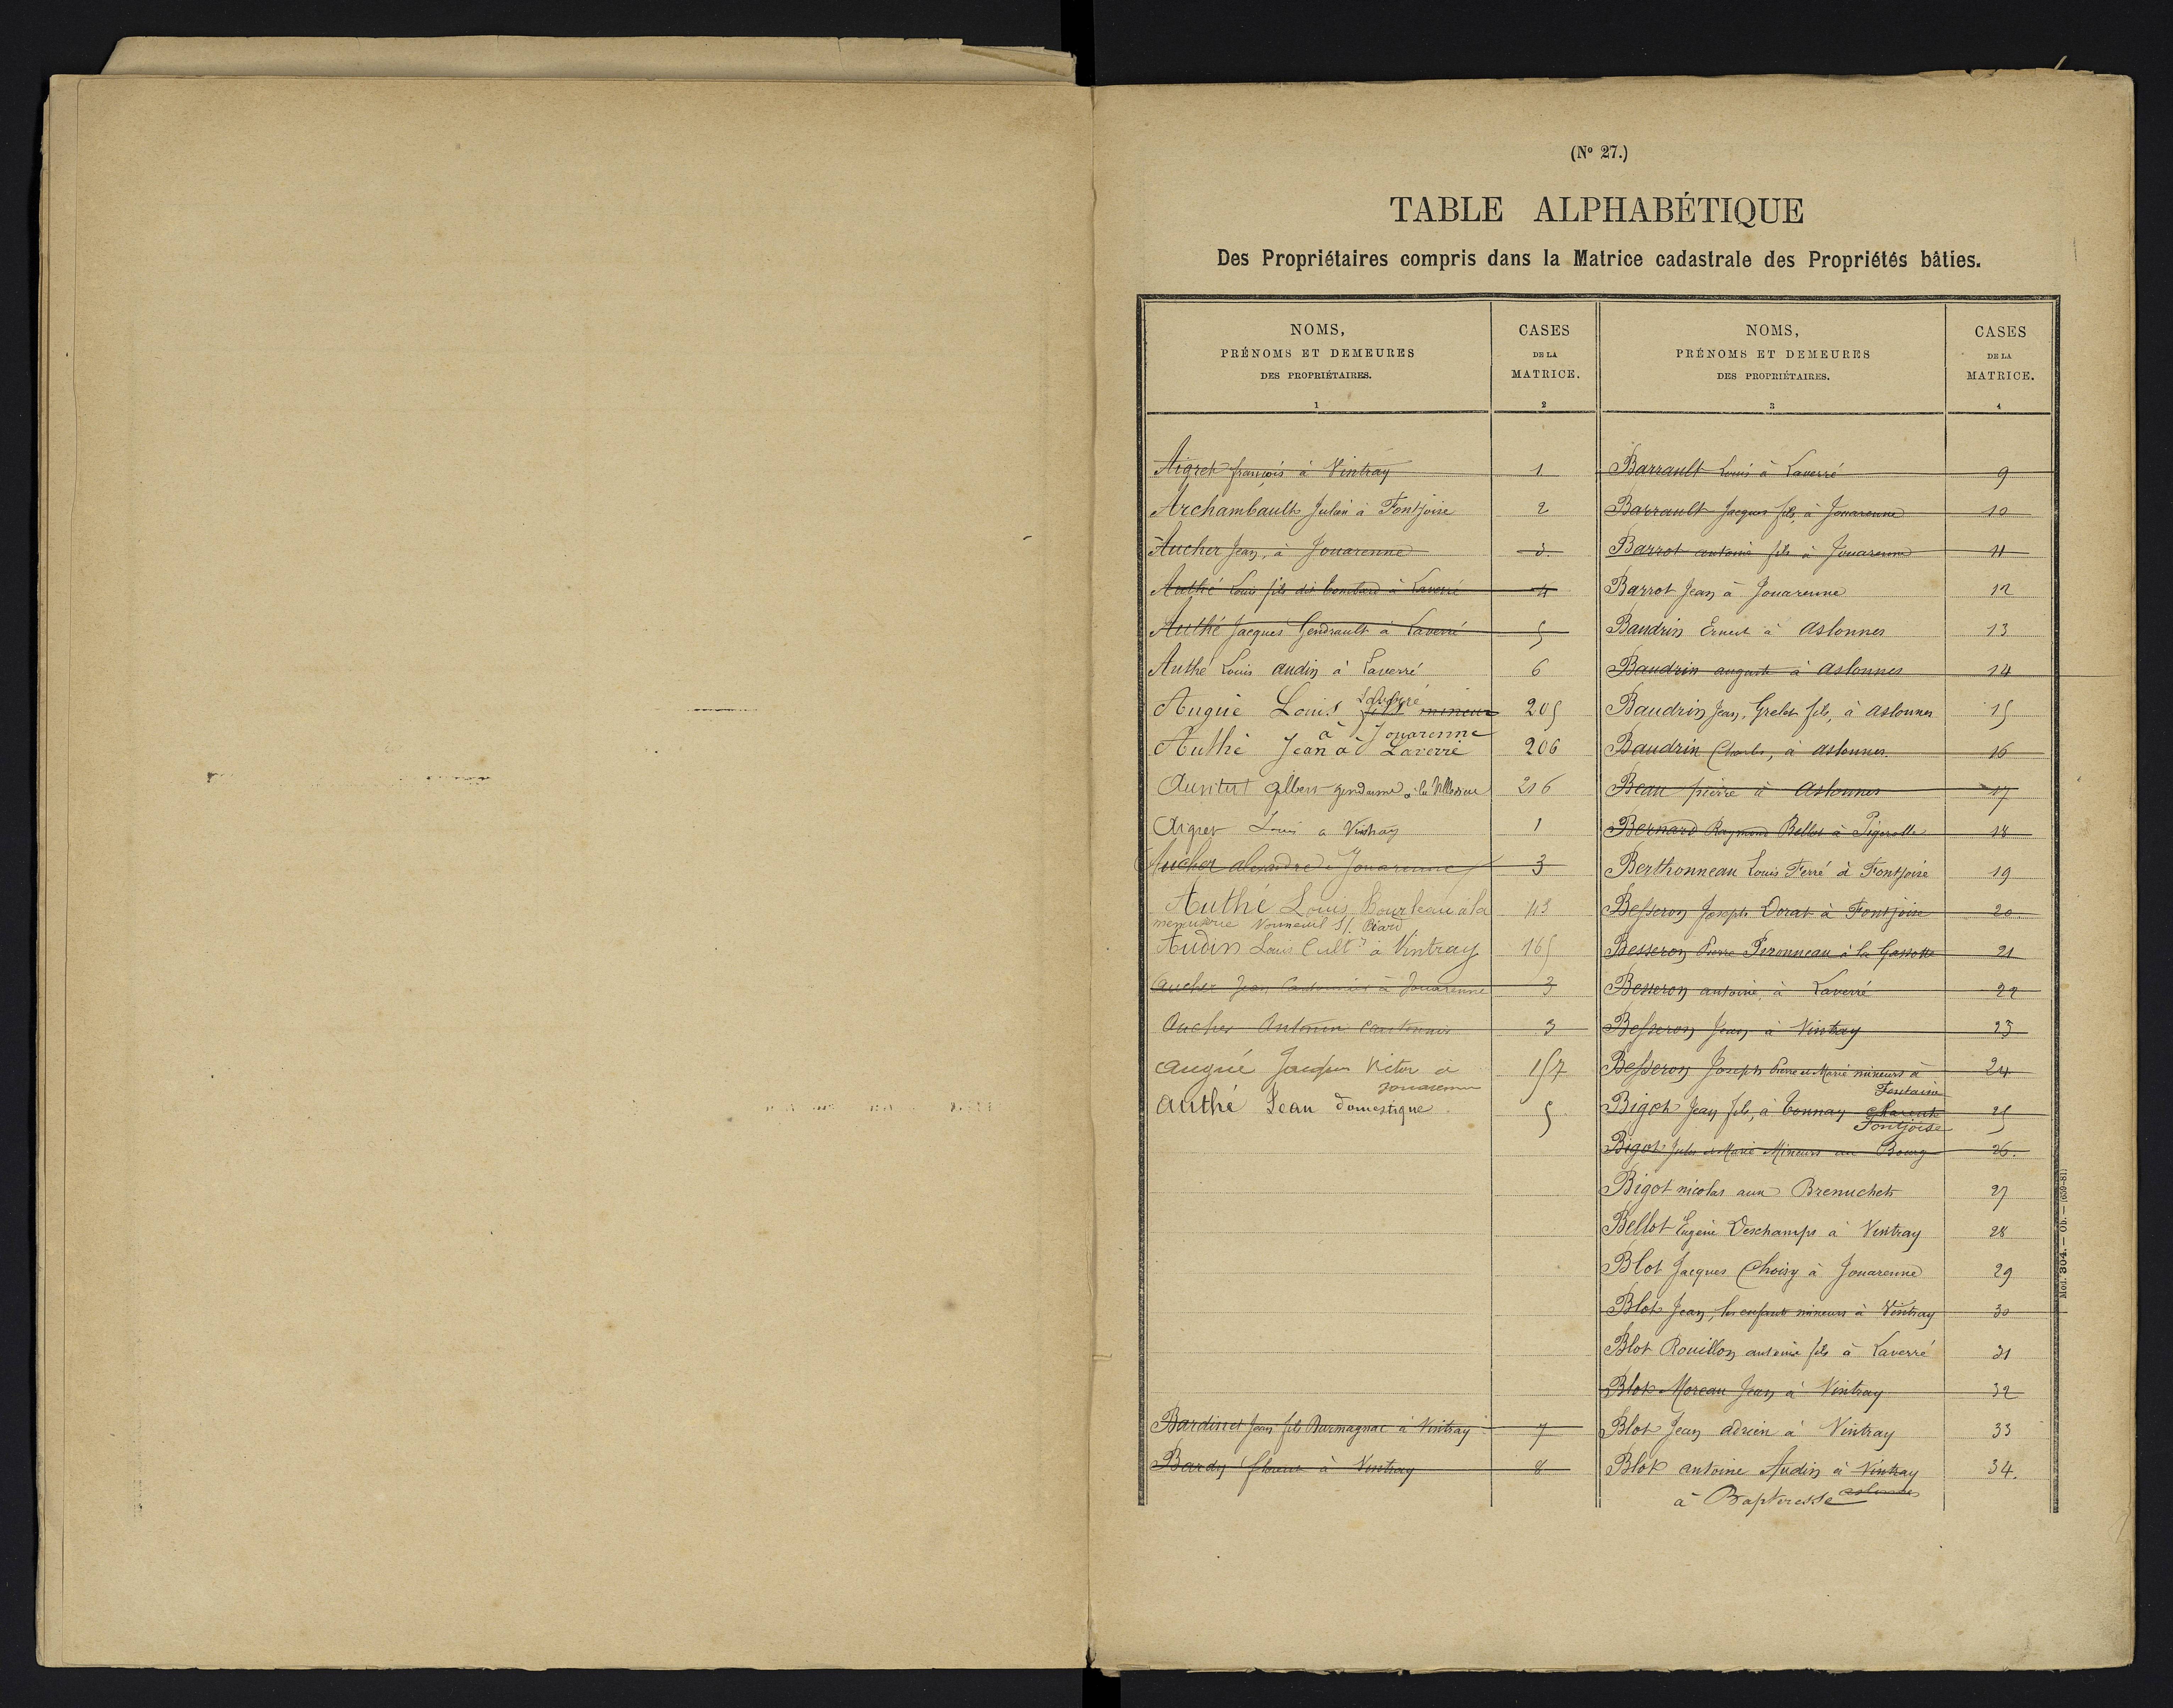 (Nº 27.)
TABLE ALPHABÉTIQUE
Des Propriétaires compris dans la Matrice cadastrale des Propriétés bâties.
NOMS,
PRÉNOMS ET DEMEURES
DES PROPRIÉTAIRES.
1
CASES
DE LA
MATRICE.
2
NOMS,
PRÉNOMS ET DEMEURES
DES PROPRIÉTAIRES.
3
CASES
DE LA
MATRICE.
4
Aigret françois à Vintray 1
Archambault Julien à Fontjoise 2
Aucher Jean, à Jouarenne 3
Authé Louis fils dit à Laverré 4
Authé Jacques Gendrault à Laverré 5
Authé Louis Audin à Laverré 6
Augué Louis fils mineur 205
à Jouarenne
Authé Jean à Laverré 206
gilbert gendarme à la Villedieu 216
Aigret Louis a Vintray 1
Aucher alexandre à Jouarenne 3
Authé Louis Bourleau à la 113
Vouneuil S/. Biard
Audin Louis Cultr à Vintray 165
Aucher Jean Cantonnier à Jouarenne 3
Aucher Antonin cantonnier 3
Augué Jacques Victor à 157
Jouarenne
Authé Jean domestique 5
Bardinet Jean fils Darmagnac à Vintray 7
Bardy à Vintray 8
Barrault Louis à Laverré 9
Barrault Jacques fils, à Jouarenne 10
Barrot antoine fils à Jouarenne 11
Barrot Jean à Jouarenne 12
Baudrin Ernest à Aslonnes 13
Baudrin auguste à Aslonnes 14
Baudrin Jean, Grelet fils, à Aslonnes 15
Baudrin Charles, à Aslonnes 16
Beau pierre à Aslonnes 17
Bernard Raymond Bellot à Pigerolle 18
Berthonneau Louis Ferré à Fontjoise 19
Besseron Joseph Dorat à Fontjoise 20
Besseron Pierre Peronneau à la Gassotte 21
Besseron antoine à Laverré 22
Besseron Jean à Vintray 23
Besseron Joseph Pierre et Marie mineurs à 24
Fontaine
Bigot Jean fils, à Tonnay Charente 25
Fontjoise
Bigot Jules et Marie Mineurs au Bourg 26.
Bigot nicolas aux Brenuchets 27
Bellot Eugène Deschamps à Vintray 28
Blot Jacques Choisy à Jouarenne 29
Blot Jean, les enfants mineurs à Vintray 30
Blot Rouillon antoine fils à Laverré 31
Blot Moreau Jean à Vintray 32
Blot Jean Adrien à Vintray 33
Blot antoine Audin à Vintray 34.
à Bapteresse aslonnes
Mod. 304. — Ob. — (659-81)